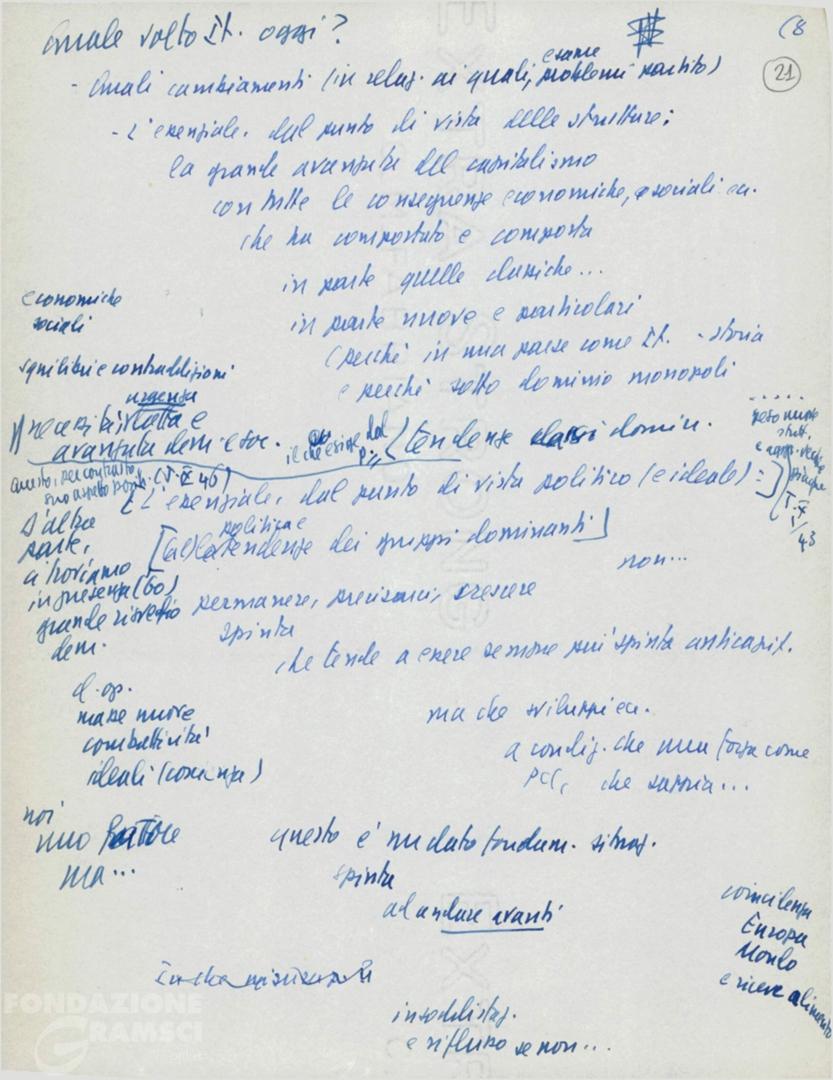 Quale volto It. oggi?
(8
21
esame
- Quali cambiamenti (in relaz. ai quali, problemi partito)
- L'essenziale, dal punto di vista delle strutture:
la grande avanzata del capitalismo
con tutte le conseguenze economiche, sociali ecc.
che ha comportato e comporta
in parte quelle classiche...
in parte nuove e particolari
(perché in una paese come It. - storia
e perché sotto dominio monopoli
economiche
sociali
squilibri e contraddizioni
urgenza
necessità lotta e
avanzata dem e soc.
il che esige dal
P.
(tendenze classi domin.
.....
peso nuove
strutt.
questo, per contrasto,
(T. X 46)
[L'essenziale, dal punto di vista politico (e ideale) :
(T. X
43
politiche
[(a) le tendenze dei gruppi dominanti]
non...
D'altra
parte,
ci troviamo
in presenza (60)
grande risveglio
dem.
permanere, precisarsi, crescere
spinta
che tende a essere sempre più spinta anticapit.
cl. op.
masse nuove
combattività
ideali (coscienza)
ma che sviluppi ecc.
a condiz. che una forza come
PCI, che sappia...
noi
suo fattore
ma...
questo è un dato fondam. situaz.
spinta
ad andare avanti
coincidenza
Europa
Mondo
e riceve alimento
In che misura
insoddisfaz.
e riflusso se non...
FONDAZIONE
GRAMSCI